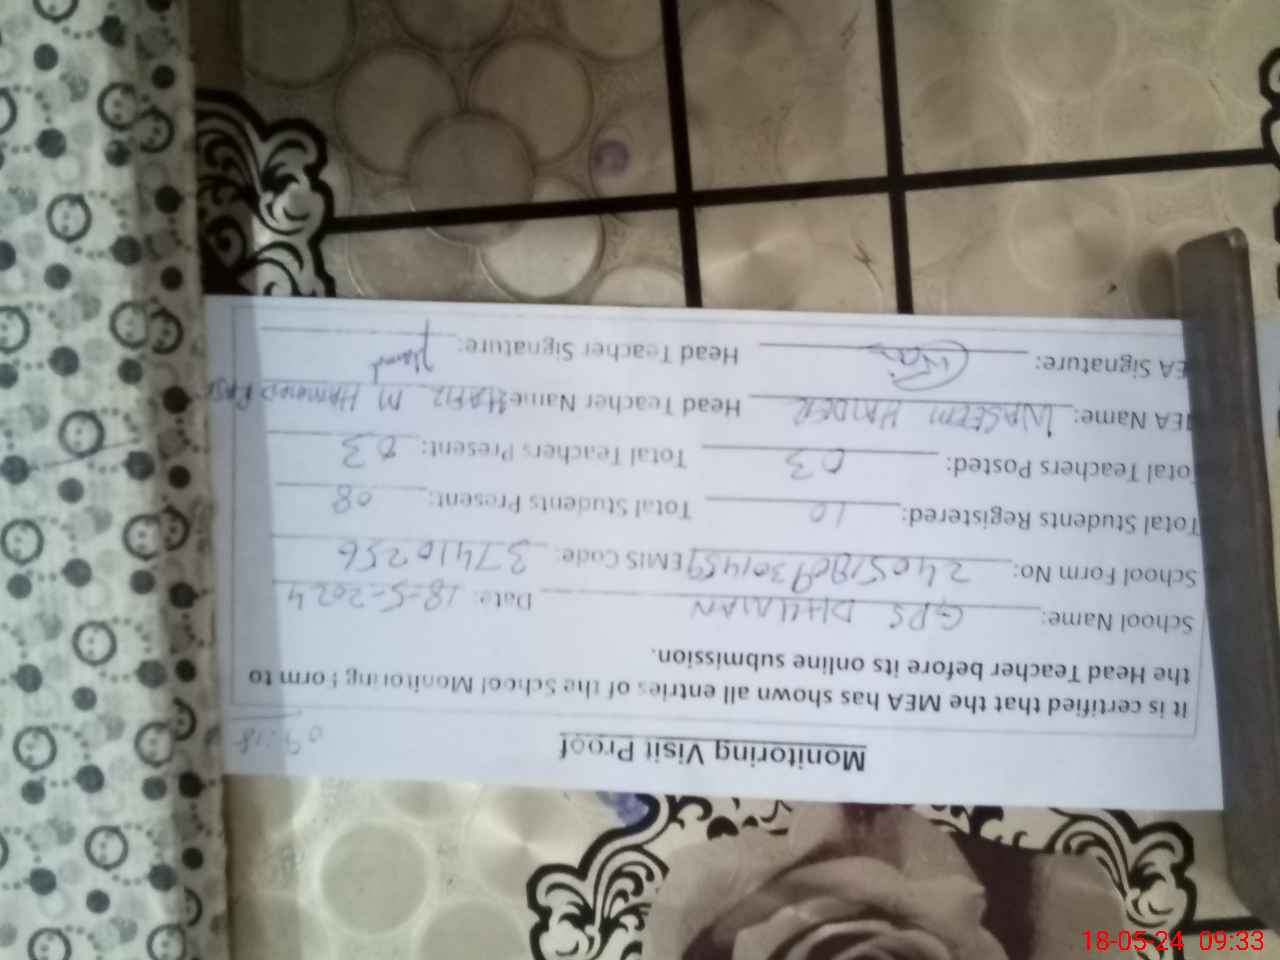 Monitoring Visit Proof
09:18
It is certified that the MEA has shown all entries of the School Monitoring Form to
the Head Teacher before its online submission.
School Name: GPS DHULIAN Date: 18-5-2024
School Form No: EMIS Code: 37410256
Total Students Registered: 10 Total Students Present: 08
Total Teachers Posted: 03 Total Teachers Present: 03
MEA Name: WASEEM HAIDER Head Teacher Name: HAFIZ M HAMMAD
MEA Signature: Head Teacher Signature: Hamad
18-05-24 09:33